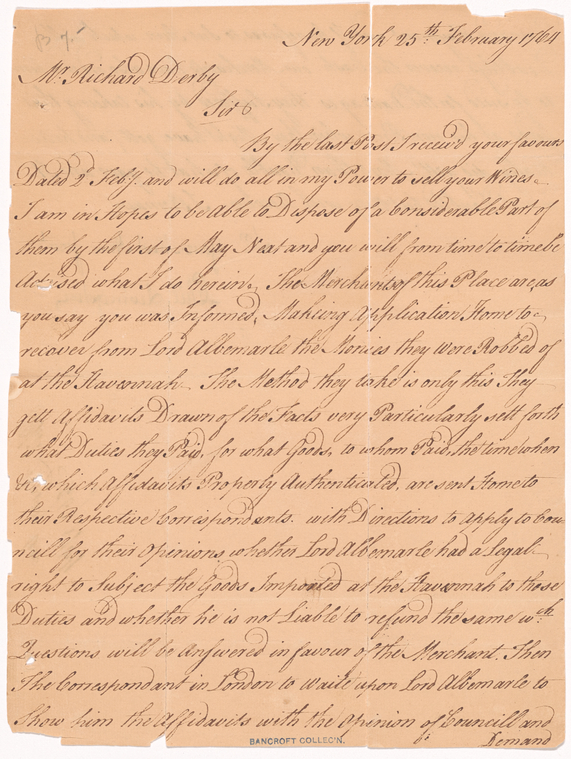 B 7.-
New York 25th. February 1764
Mr. Richard Derby
Sir
By the last Post I receiv'd your favours
Dated 2d Feby. and will do all in my Power to sell your Wines.
I am in Hopes to be Able to Dispose of a Considerable Part of
them by the first of May Next and you will from time to time be
Advised what I do herein. The Merchants of this Place are, as
you say you was Informed, Making Application Home to
recover from Lord Albemarle the Monies they were Robbed of
at the Havannah. The Method they take is only this They
gett Affidavits Drawn of the Facts very Particularly sett forth
what Duties they Paid, for what Goods, to whom Paid, the time when
&c, which Affidavits Properly Authenticated, are sent Home to
their Respective Correspondants. with Directions to apply to Cou-
ncill for their Opinions whether Lord Albemarle had a Legal
right to Subject the Goods Imported at the Havannah to those
Duties and whether he is not Liable to refund the same wch.
Questions will be Answered in favour of the Merchant. Then
The Correspondant in London to Waite upon Lord Albemarle to
Show him the Affidavits with the Opinion of Councill and
Demand
BANCROFT COLLEC'N.